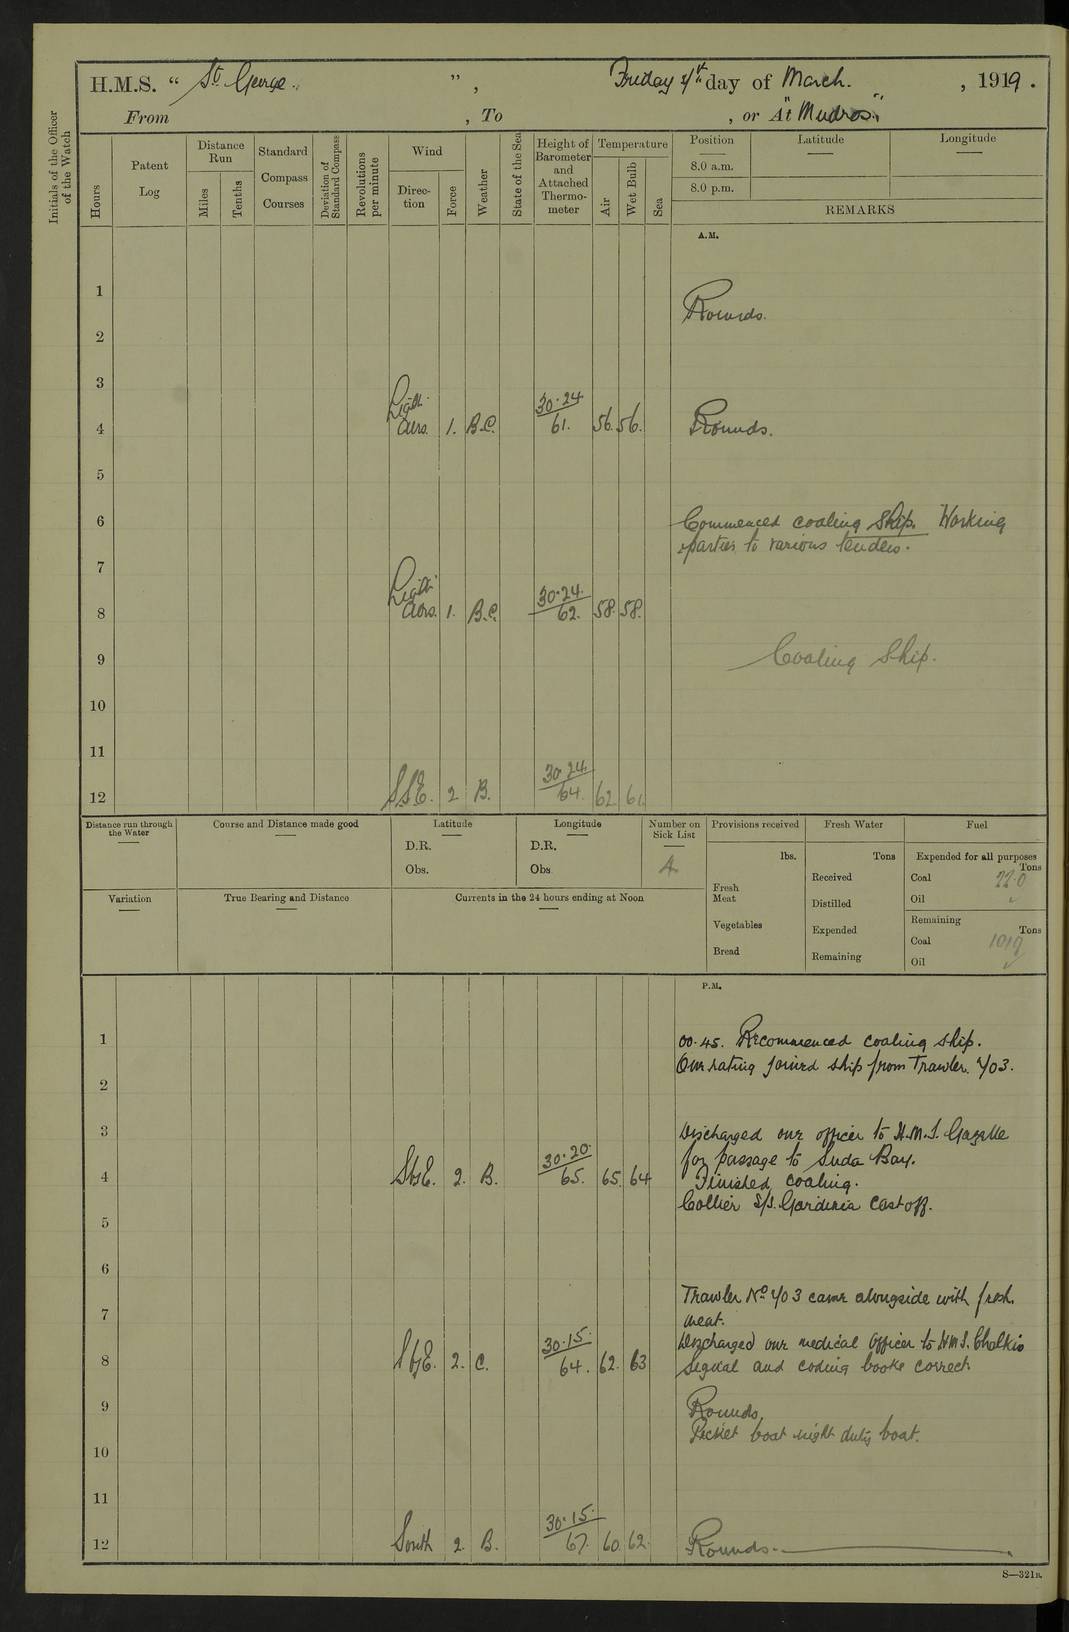 H.M.S. " St George. ", Friday day of March. , 1919.
From , To , or At "Mudros."
Initials of the Officer of the Watch
Hours
Patent Log
Distance Run
Miles
Tenths
Standard Compass Courses
Deviation of Standard Compass
Revolutions per minute
Wind
Direc-tion
Force
Weather
State of the Sea
Height of Barometer and Attached Thermo-meter
Temperature
Air
Wet Bulb
Sea
Position Latitude Longitude
8.0 a.m.
8.0 p.m.
REMARKS
A.M.
1
Rounds.
2
3
Light 30.24
4 airs. 1. B.C. 61. 56. 56. Rounds.
5
6 Commenced coaling ship. Working
parties to various tenders.
7
Light 30.24.
8 airs. 1. B.C. 62. 58. 58.
9 Coaling Ship.
10
11
30.24.
12 SSE. 2 B. 64. 62. 61.
Distance run through the Water
Course and Distance made good
Latitude
D.R.
Obs.
Longitude
D.R.
Obs
Number on Sick List
4
Provisions received
lbs.
Fresh Meat
Vegetables
Bread
Fresh Water
Tons
Received
Distilled
Expended
Remaining
Fuel
Expended for all purposes
Tons
Coal 22.0
Oil
Remaining
Tons
Coal 1019
Oil
Variation
True Bearing and Distance
Currents in the 24 hours ending at Noon
P.M.
1 00.45. Recommenced coaling ship.
One rating joined ship from Trawler 403.
2
3 Discharged one officer to H.M.S. Gazelle
30.20. for passage to Suda Bay.
4 SbE. 2. B. 65. 65. 64 Finished coaling.
Collier S/S. Gardinia cast off.
5
6
Trawler No 403 came alongside with fresh
7 meat.
30.15. Discharged one medical officer to HMS. Chalkis
8 SbE. 2. C. 64. 62. 63 Signal and coding books correct.
9 Rounds.
Picket boat night duty boat.
10
11
30.15.
12 South 2. B. 67. 60. 62. Rounds.
S—321B.